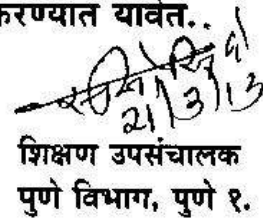 करण्यात यावेत..
21/3/13
शिक्षण उपसंचालक
पुणे विभाग, पुणे १.